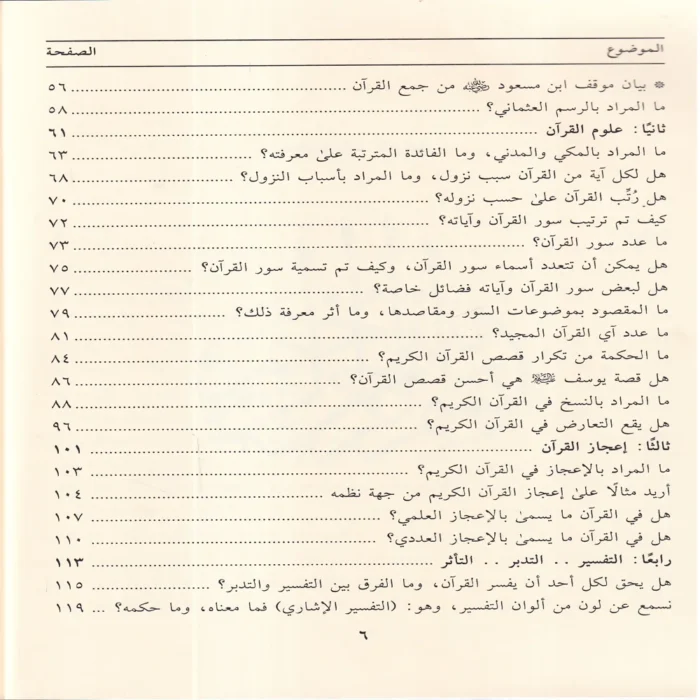 الموضوع الصفحة
* بيان موقف ابن مسعود ﷺ من جمع القرآن ............ ٥٦
ما المراد بالرسم العثماني؟ ............ ٥٨
ثانيًا: علوم القرآن ............ ٦١
ما المراد بالمكي والمدني، وما الفائدة المترتبة على معرفته؟ ............ ٦٣
هل لكل آية من القرآن سبب نزول، وما المراد بأسباب النزول؟ ............ ٦٨
هل رُتِّب القرآن على حسب نزوله؟ ............ ٧٠
كيف تم ترتيب سور القرآن وآياته؟ ............ ٧٢
ما عدد سور القرآن؟ ............ ٧٣
هل يمكن أن تتعدد أسماء سور القرآن، وكيف تم تسمية سور القرآن؟ ............ ٧٥
هل لبعض سور القرآن وآياته فضائل خاصة؟ ............ ٧٧
ما المقصود بموضوعات السور ومقاصدها، وما أثر معرفة ذلك؟ ............ ٧٩
ما عدد آي القرآن المجيد؟ ............ ٨١
ما الحكمة من تكرار قصص القرآن الكريم؟ ............ ٨٤
هل قصة يوسف هي أحسن قصص القرآن؟ ............ ٨٦
ما المراد بالنسخ في القرآن الكريم؟ ............ ٨٨
هل يقع التعارض في القرآن الكريم؟ ............ ٩٦
ثالثًا: إعجاز القرآن ............ ١٠١
ما المراد بالإعجاز في القرآن الكريم؟ ............ ١٠٣
أريد مثالًا على إعجاز القرآن الكريم من جهة نظمه ............ ١٠٤
هل في القرآن ما يسمى بالإعجاز العلمي؟ ............ ١٠٧
هل في القرآن ما يسمى بالإعجاز العددي؟ ............ ١١٠
رابعًا: التفسير .. التدبر .. التأثر ............ ١١٣
هل يحق لكل أحد أن يفسر القرآن، وما الفرق بين التفسير والتدبر؟ ............ ١١٥
نسمع عن لون من ألوان التفسير، وهو: (التفسير الإشاري) فما معناه، وما حكمه؟ ... ١١٩
٦